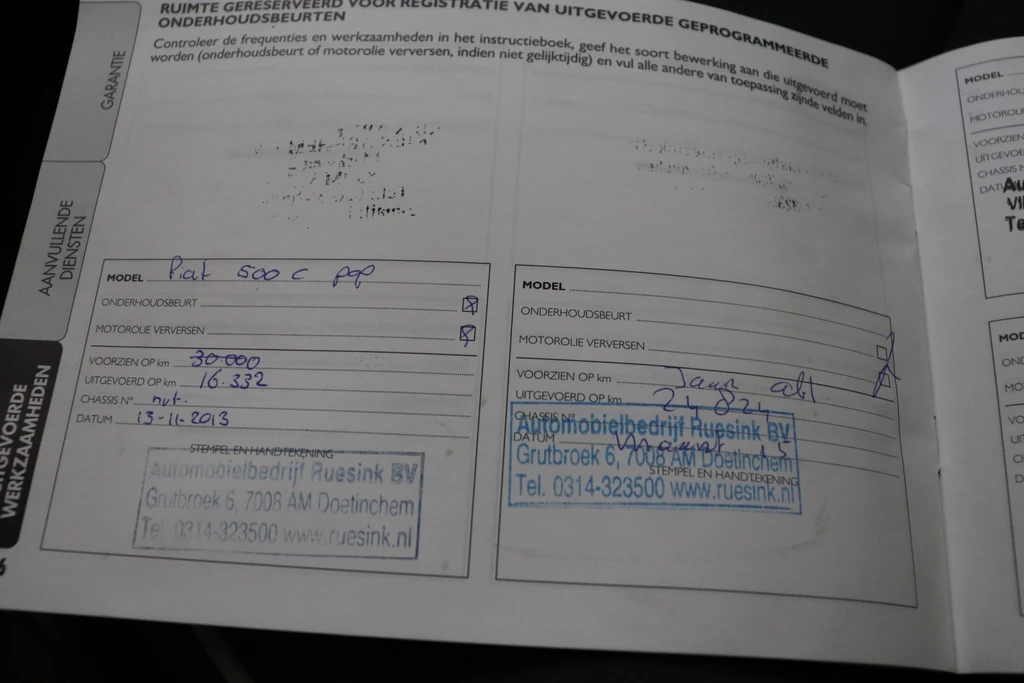 RUIMTE GERESERVEERD VOOR REGISTRATIE VAN UITGEVOERDE GEPROGRAMMEERDE
ONDERHOUDSBEURTEN
Controleer de frequenties en werkzaamheden in het instructieboek, geef het soort bewerking aan die uitgevoerd moet
worden (onderhoudsbeurt of motorolie verversen, indien niet gelijktijdig) en vul alle andere van toepassing zijnde velden in.
GARANTIE
AANVULLENDE
DIENSTEN
WERKZAAMHEDEN
MODEL Fiat 500 C pop
ONDERHOUDSBEURT
MOTOROLIE VERVERSEN
VOORZIEN OP km 30.000
UITGEVOERD OP km 16.332
CHASSIS N° nvt.
DATUM 13-11-2013
STEMPEL EN HANDTEKENING
Automobielbedrijf Ruesink BV
Grutbroek 6, 7008 AM Doetinchem
Tel. 0314-323500 www.ruesink.nl
MODEL
ONDERHOUDSBEURT
MOTOROLIE VERVERSEN
VOORZIEN OP km
UITGEVOERD OP km 24824
CHASSIS N°
DATUM
STEMPEL EN HANDTEKENING
Automobielbedrijf Ruesink BV
Grutbroek 6, 7008 AM Doetinchem
Tel. 0314-323500 www.ruesink.nl
MODEL